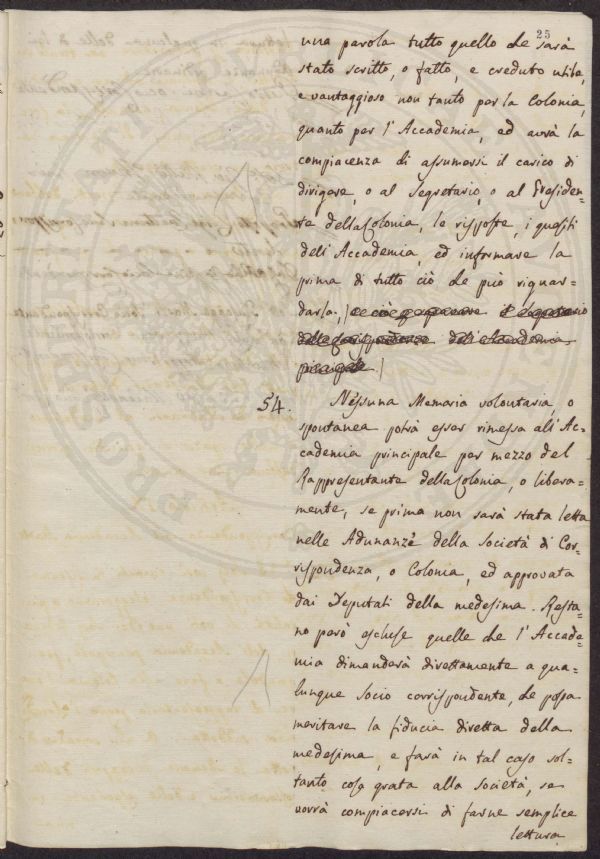 25
una parola tutto quello che sarà
stato scritto, o fatto, e creduto utile,
e vantaggioso non tanto per la Colonia,
quanto per l'Accademia, ed avrà la
compiacenza di assumersi il carico di
dirigere, o al Segretario, o al Presiden=
te della Colonia, le risposte, i quesiti
dell'Accademia, ed informare la
prima di tutto ciò che può riguar=
darla;
dell'Accademia
54. Nessuna Memoria volontaria, o
spontanea potrà esser rimessa all'Ac=
cademia principale per mezzo del
Rappresentante della Colonia, o libera=
mente, se prima non sarà stata letta
nelle Adunanze della Società di Cor=
rispondenza, o Colonia, ed approvata
dai Deputati della medesima. Resta=
no però escluse quelle che l'Accade=
mia dimanderà direttamente a qua=
lunque Socio corrispondente, che possa
meritare la fiducia diretta della
medesima, e farà in tal caso sol=
tanto cosa grata alla Società, se
vorrà compiacersi di farne semplice
lettura